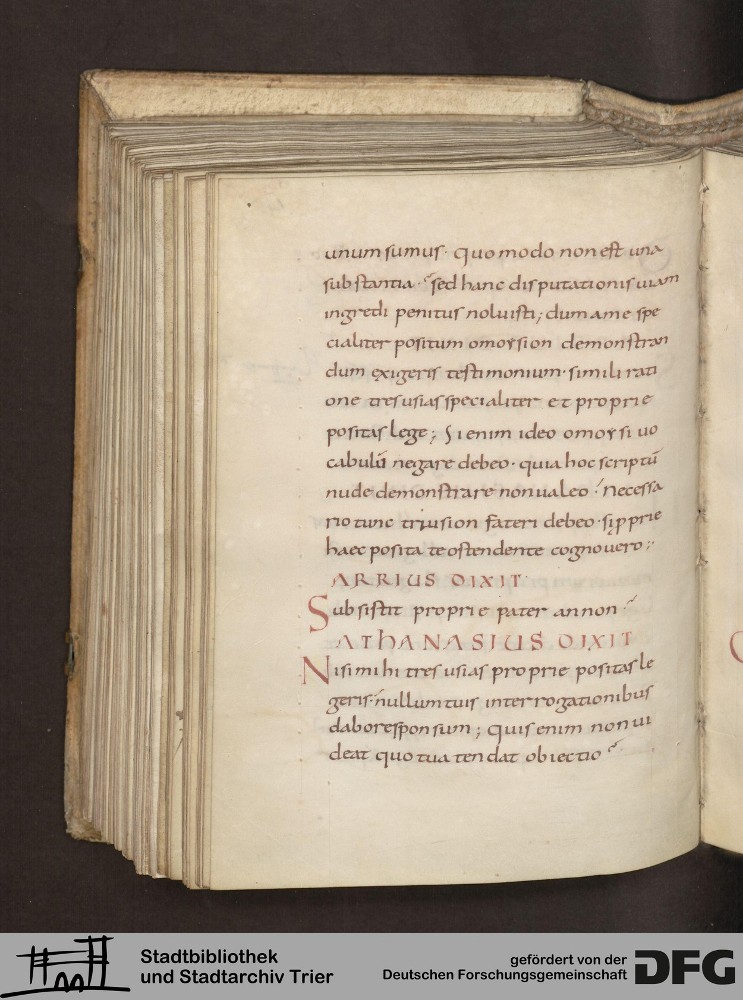 unum sumus· quomodo non est una
substantia·? sed hanc disputationis uiam
ingredi penitus noluisti; dum a me spe
cialiter positum omoysion demonstran
dum exigeris testimonium· simili rati
one tres usias specialiter et proprie
positas lege; Si enim ideo omoysi uo
cabulū negare debeo· quia hoc scriptū
nude demonstrare non ualeo? Necessa
rio tunc triusion fateri debeo· si pprie
haec posita te ostendente cognouero;
ARRIUS DIXIT·
Subsistit proprie pater an non?
ATHANASIUS DIXIT
Nisi mihi tres usias proprie positas le
geris· nullum tuis interrogationibus
dabo responsum; quis enim non ui
deat quo tua tendat obiectio?
Stadtbibliothek
und Stadtarchiv Trier
gefördert von der
Deutschen Forschungsgemeinschaft
DFG